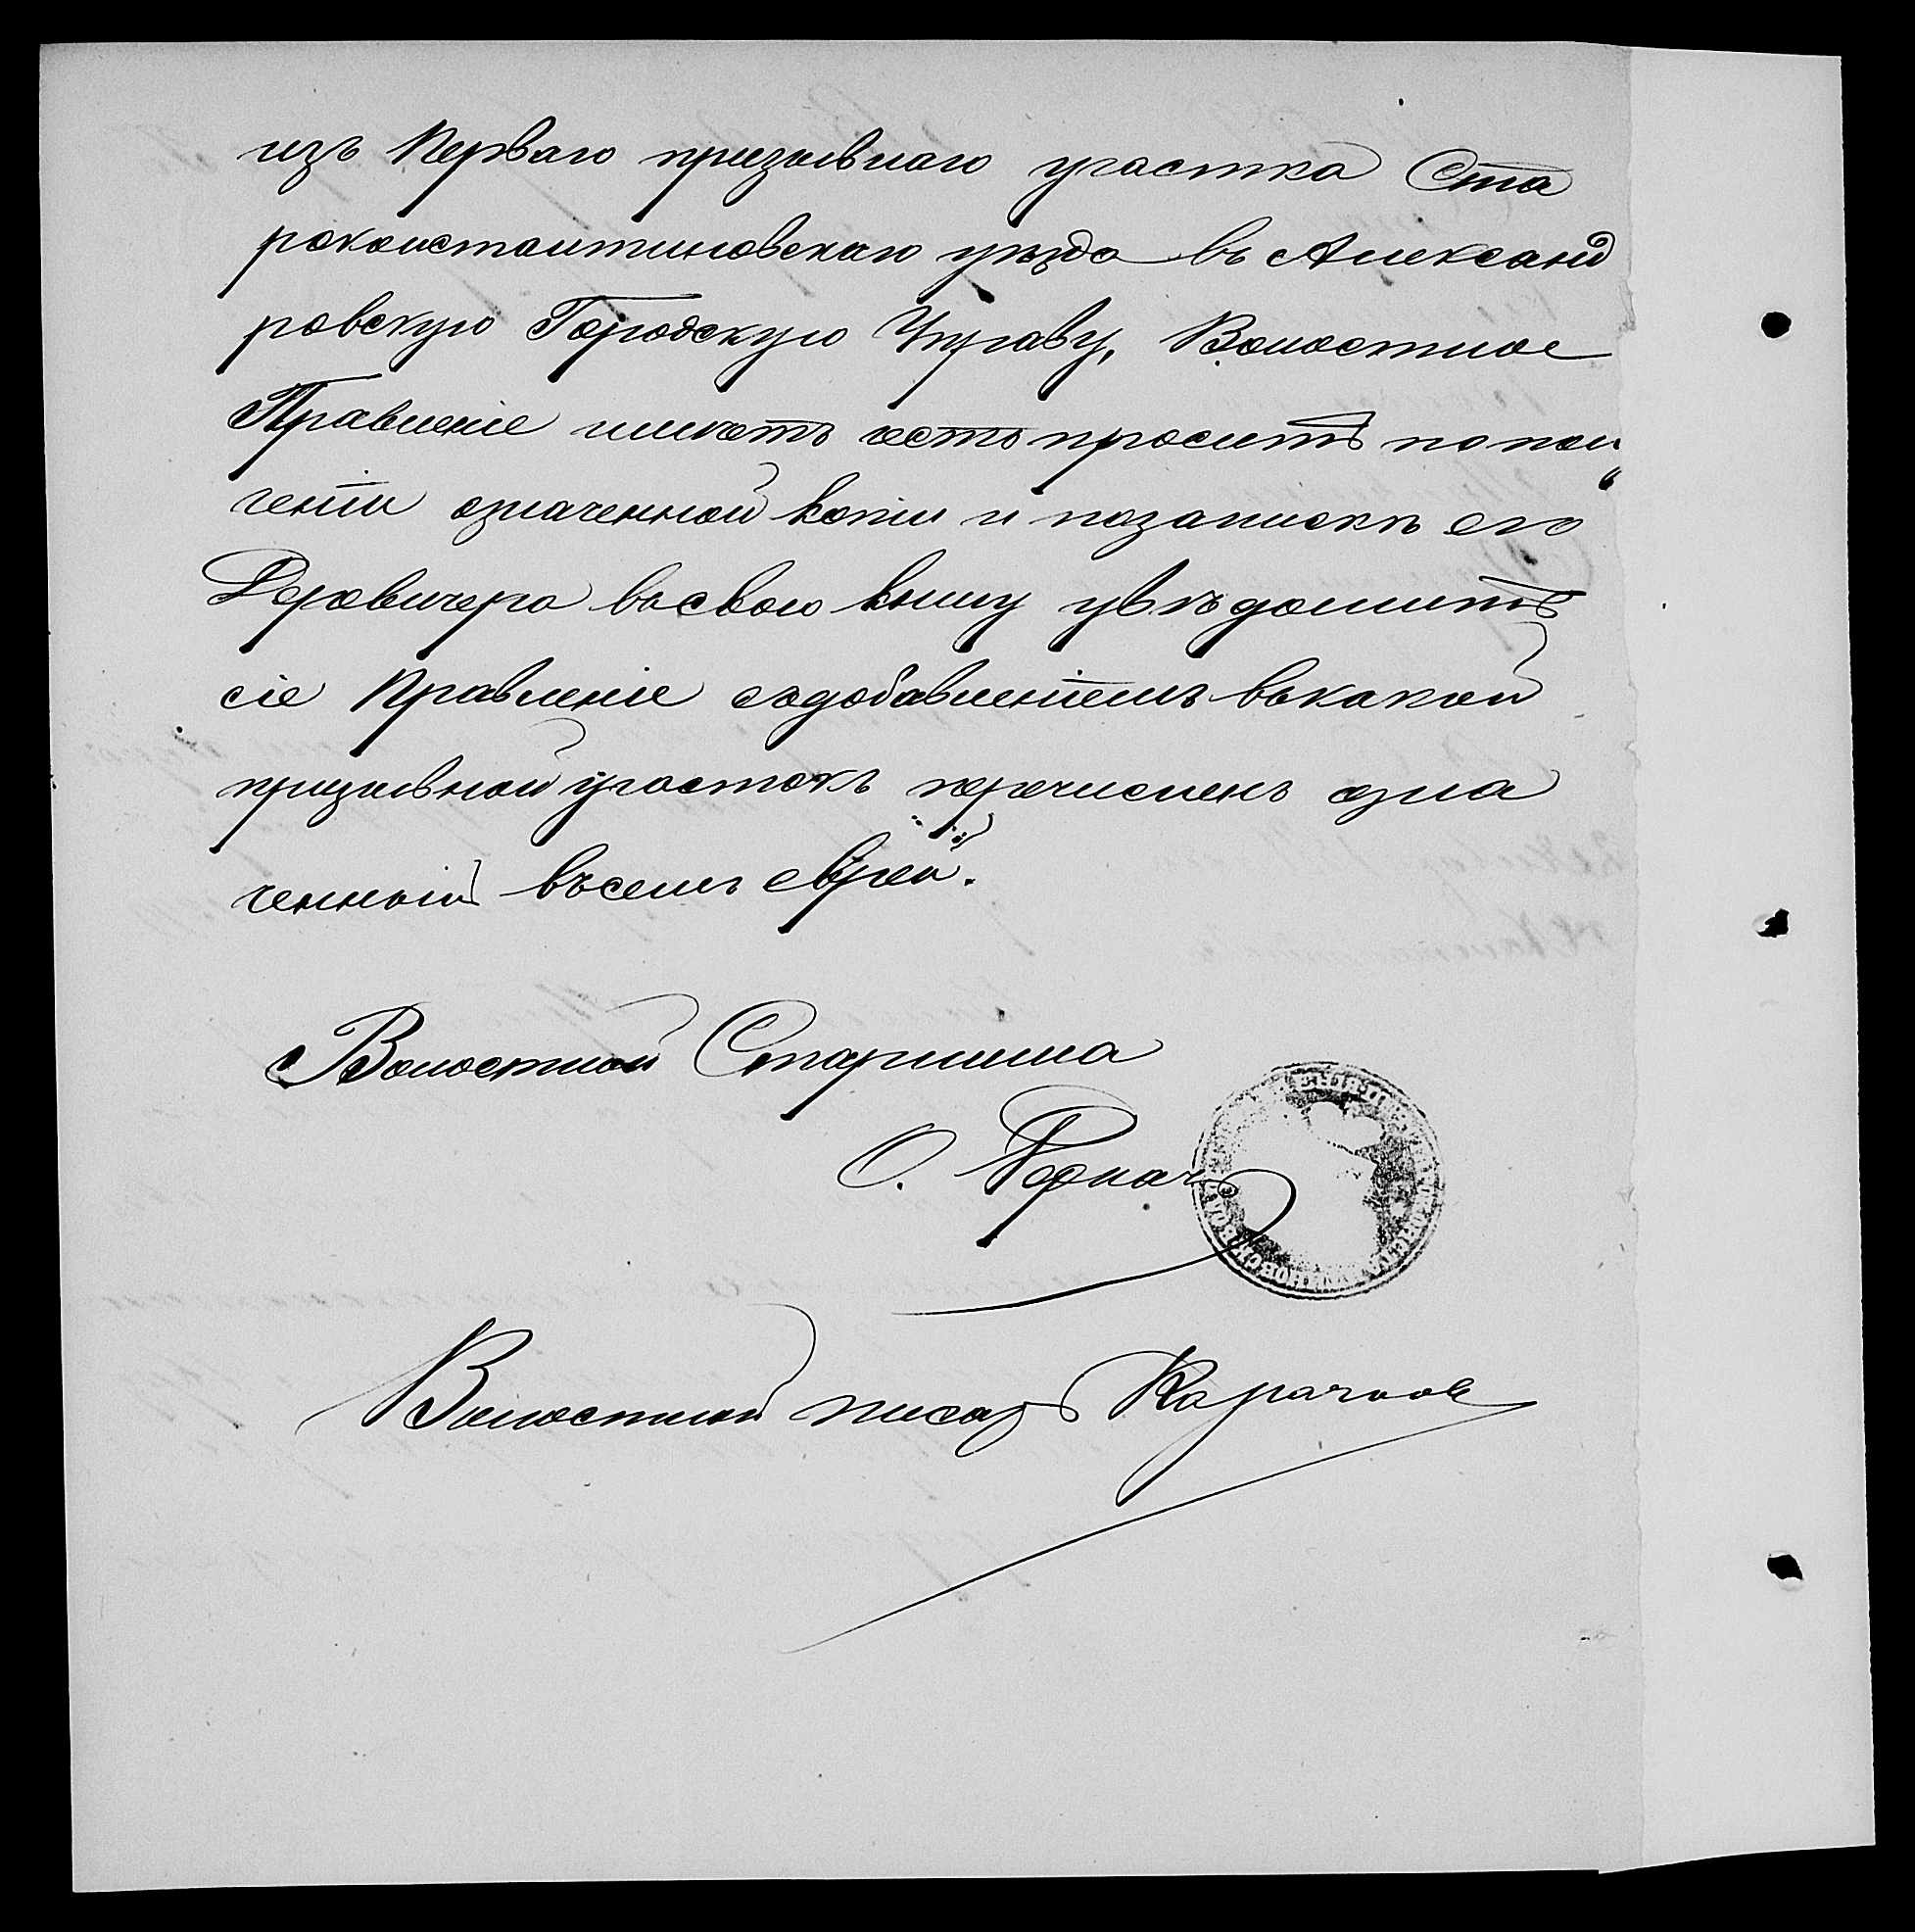 изъ перваго призывнаго участка Ста
роконстантиновскаго уѣзда въ Александ
ровскую Городскую Управу, Волостное
Правленіе имѣетъ честь просить по полу
ченіи означенной копіи и позапискѣ его
въ свою книгу увѣдомить
сіе Правленіе съ добавленіемъ въ какой
призывной участокъ перечисленъ озна
ченный въ семъ еврей.
Волостной Старшина
О.
Волостной писарь